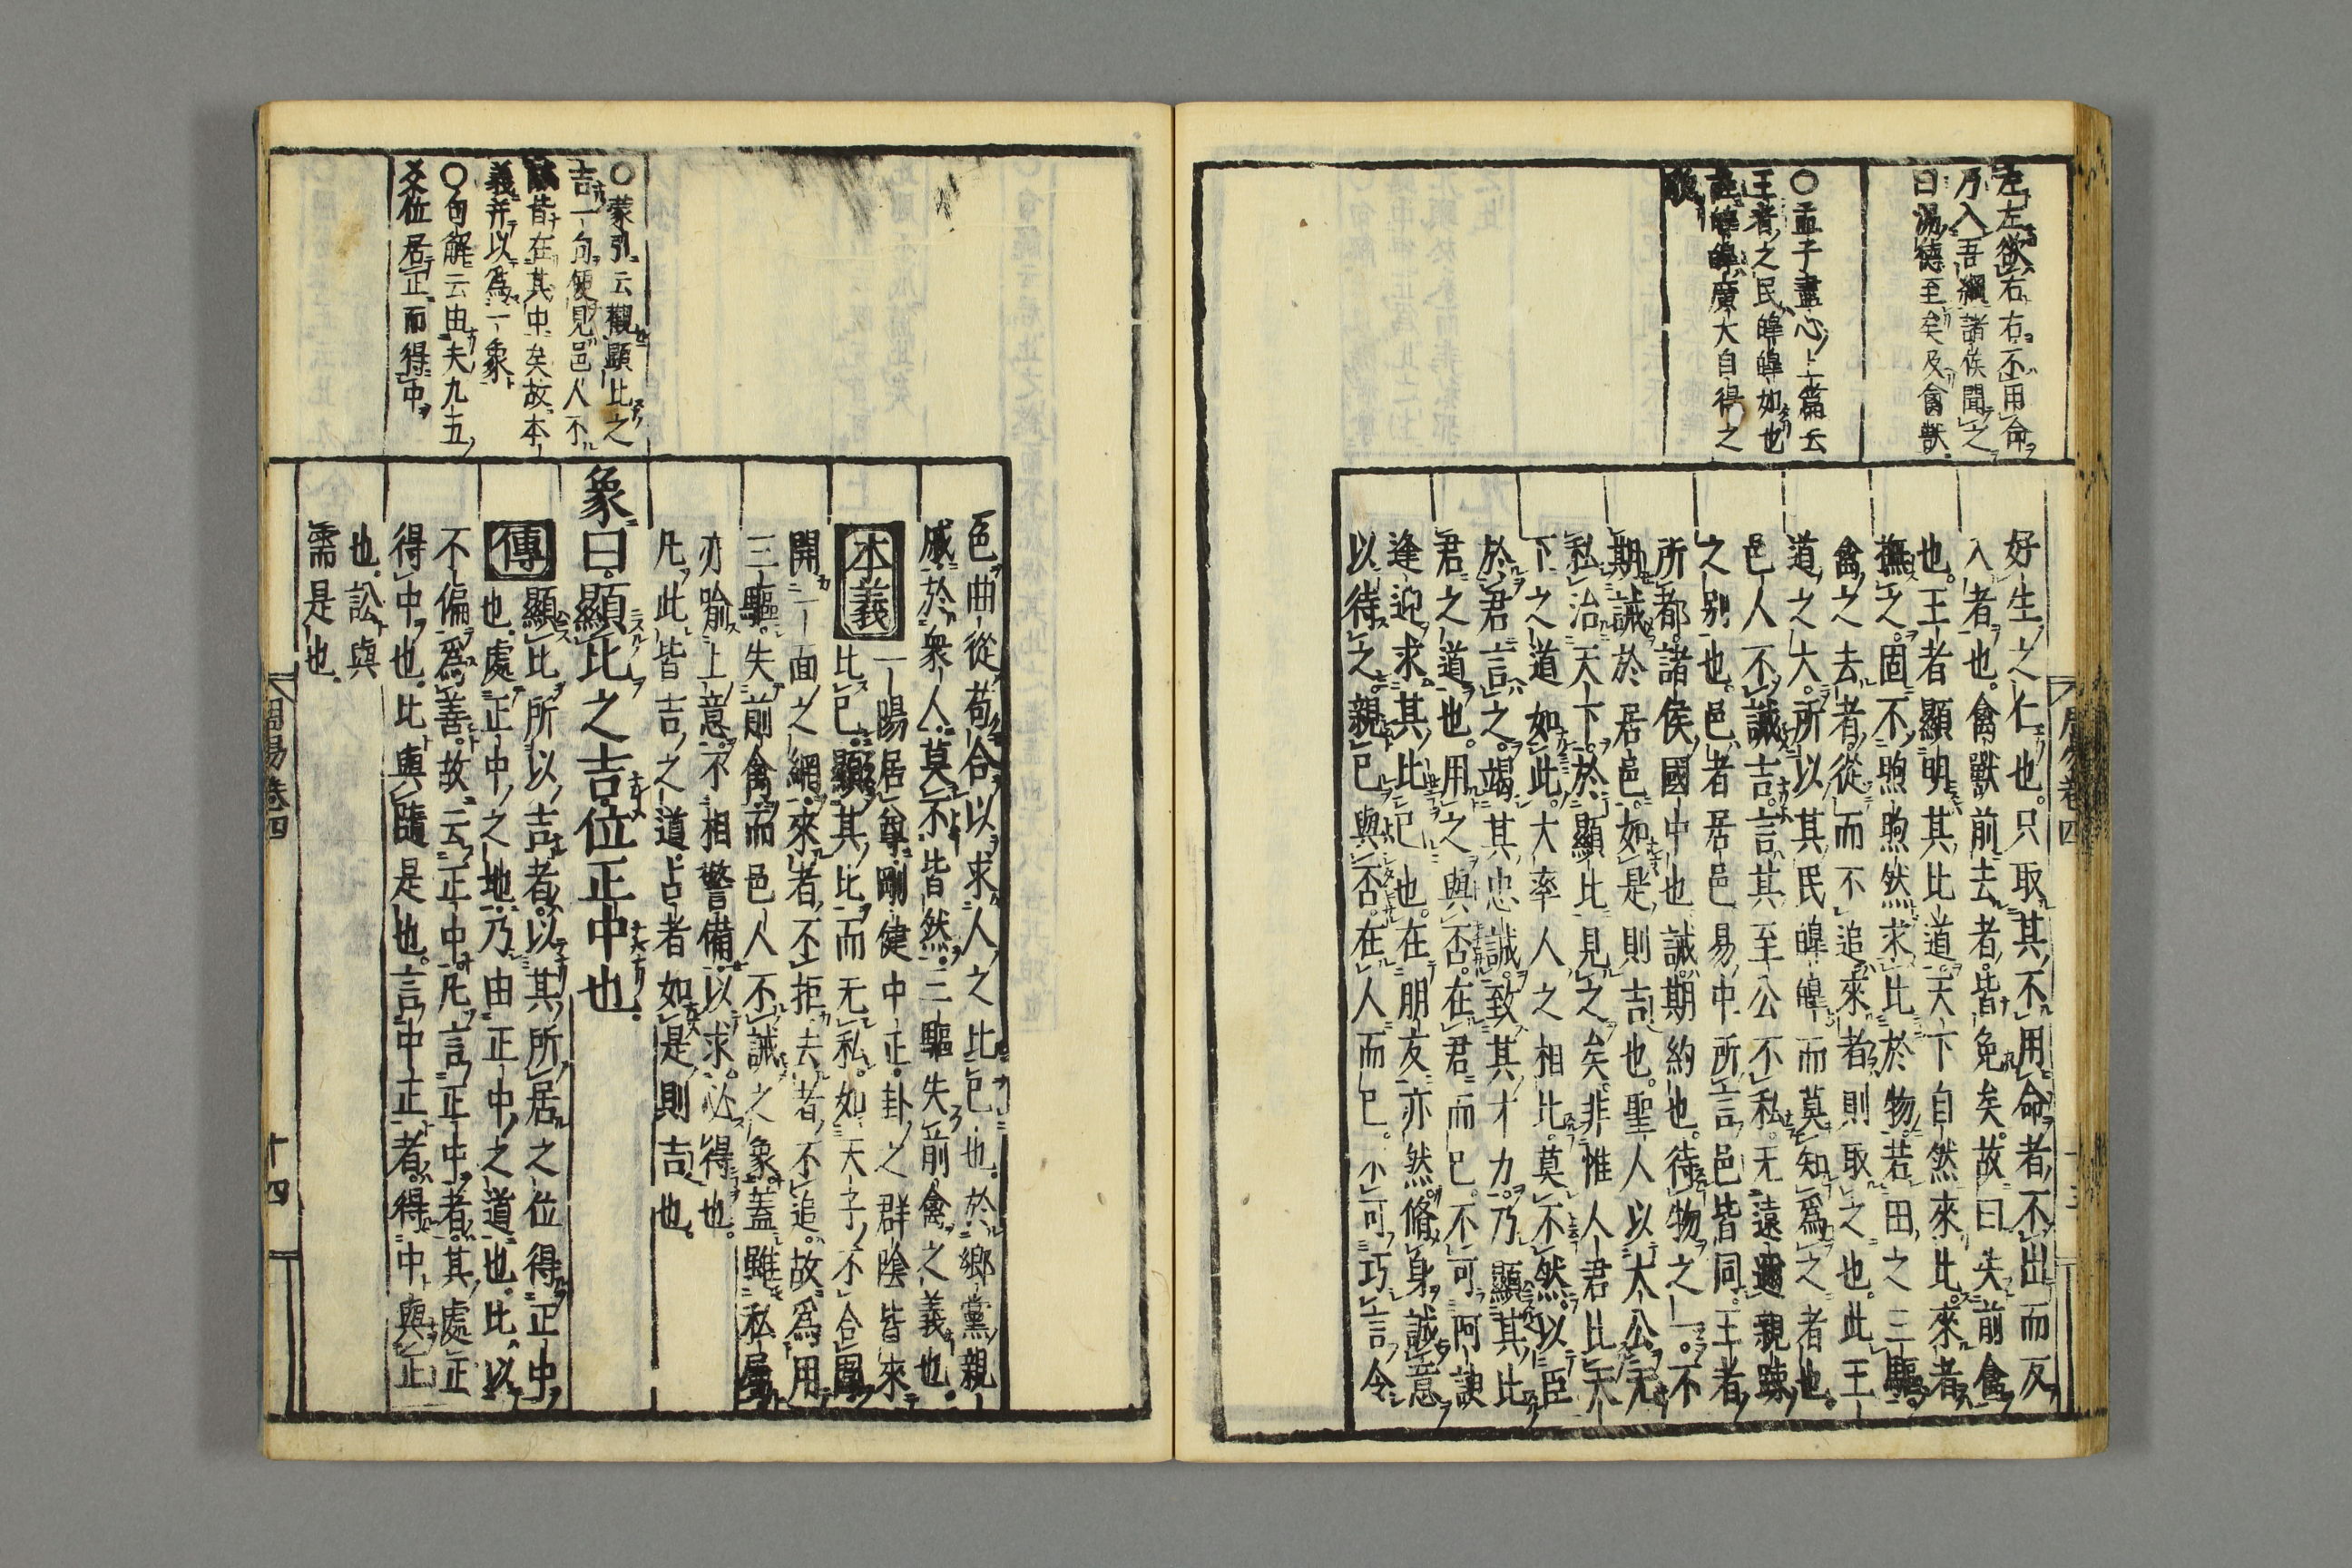 左左欲右右不用命
乃入吾網諸侯聞之
曰湯德至矣及禽獸
○孟子盡心上篇云
王者之民皥皥如也
皥皥廣大自得之
好生之仁也只取其不用命者不出而反
入者也禽獸前去者皆免矣故曰失前禽
也王者顯明其比道天下自然來比來者
撫之固不煦煦然求比於物若田之三驅
禽之去者從而不追來者則取之也此王
道之大所以其民皥皥而莫知爲之者也
邑人不誡吉言其至公不私无遠邇親踈
之別也邑者居邑易中所言邑皆同王者
所都諸侯國中也誡期約也待物之一不
期誡於居邑如是則吉也聖人以大公无
私治天下於顯比見之矣非惟人君比天
下之道如此大率人之相比莫不然以臣
於君言之竭其忠誠致其才力乃顯其比
君之道也用之與否在君而已不可阿諛
逢迎求其比已也在朋友亦然脩身誠意
以待之親已與否在人而已不可巧言令
周易卷四
○蒙引云觀顯比之
吉一句便見邑人不
誡皆在其中矣故本
義并以爲一象
○句解云由夫九五
爻位居正而得中
色曲從苟合以求人之比已也於鄉黨親
戚於衆人莫不皆然三驅失前禽之義也
本義 一陽居尊剛健中正卦之群陰皆來
比已顯其比而无私如天子不合圍
開一面之網來者不拒去者不追故爲用
三驅失前禽而邑人不誡之象蓋雖私屬
亦喻上意不相警備以求必得也
凡此皆吉之道占者如是則吉也
象曰顯比之吉位正中也
傳 顯比所以吉者以其所居之位得正中
也處正中之地乃由正中之道也比以
不偏爲善故云正中凡言正中者其處正
得中也比與隨是也言中正者得中與正
也訟與
需是也
周易卷四 十四